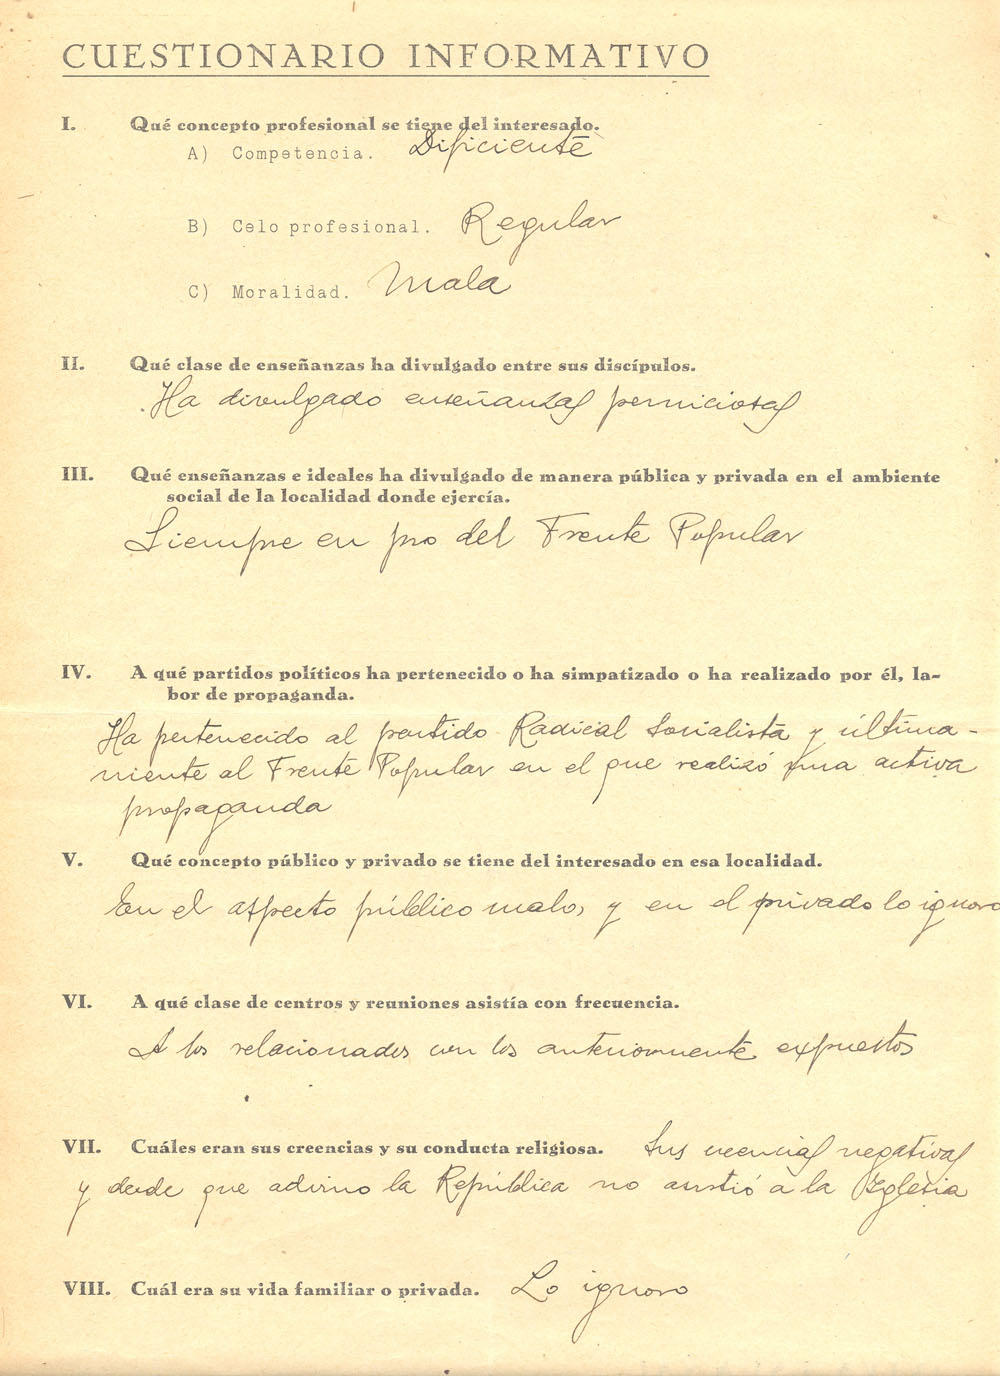 CUESTIONARIO INFORMATIVO
I. Qué concepto profesional se tiene del interesado.
A) Competencia. Dificiente
B) Celo profesional. Regular
C) Moralidad. Mala
II. Qué clase de enseñanzas ha divulgado entre sus discípulos.
Ha divulgado enseñanzas perniciosas
III. Qué enseñanzas e ideales ha divulgado de manera pública y privada en el ambiente
social de la localidad donde ejercía.
Siempre en pro del Frente Popular
IV. A qué partidos políticos ha pertenecido o ha simpatizado o ha realizado por él, la-
bor de propaganda.
Ha pertenecido al partido Radical Socialista y última-
mente al Frente Popular en el que realizó una activa
propaganda
V. Qué concepto público y privado se tiene del interesado en esa localidad.
En el aspecto público malo, y en el privado lo ignoro
VI. A qué clase de centros y reuniones asistía con frecuencia.
A los relacionados con los anteriormente expuestos
VII. Cuáles eran sus creencias y su conducta religiosa. Sus creencias negativas
y desde que advino la República no asistió a la Iglesia
VIII. Cuál era su vida familiar o privada. Lo ignoro